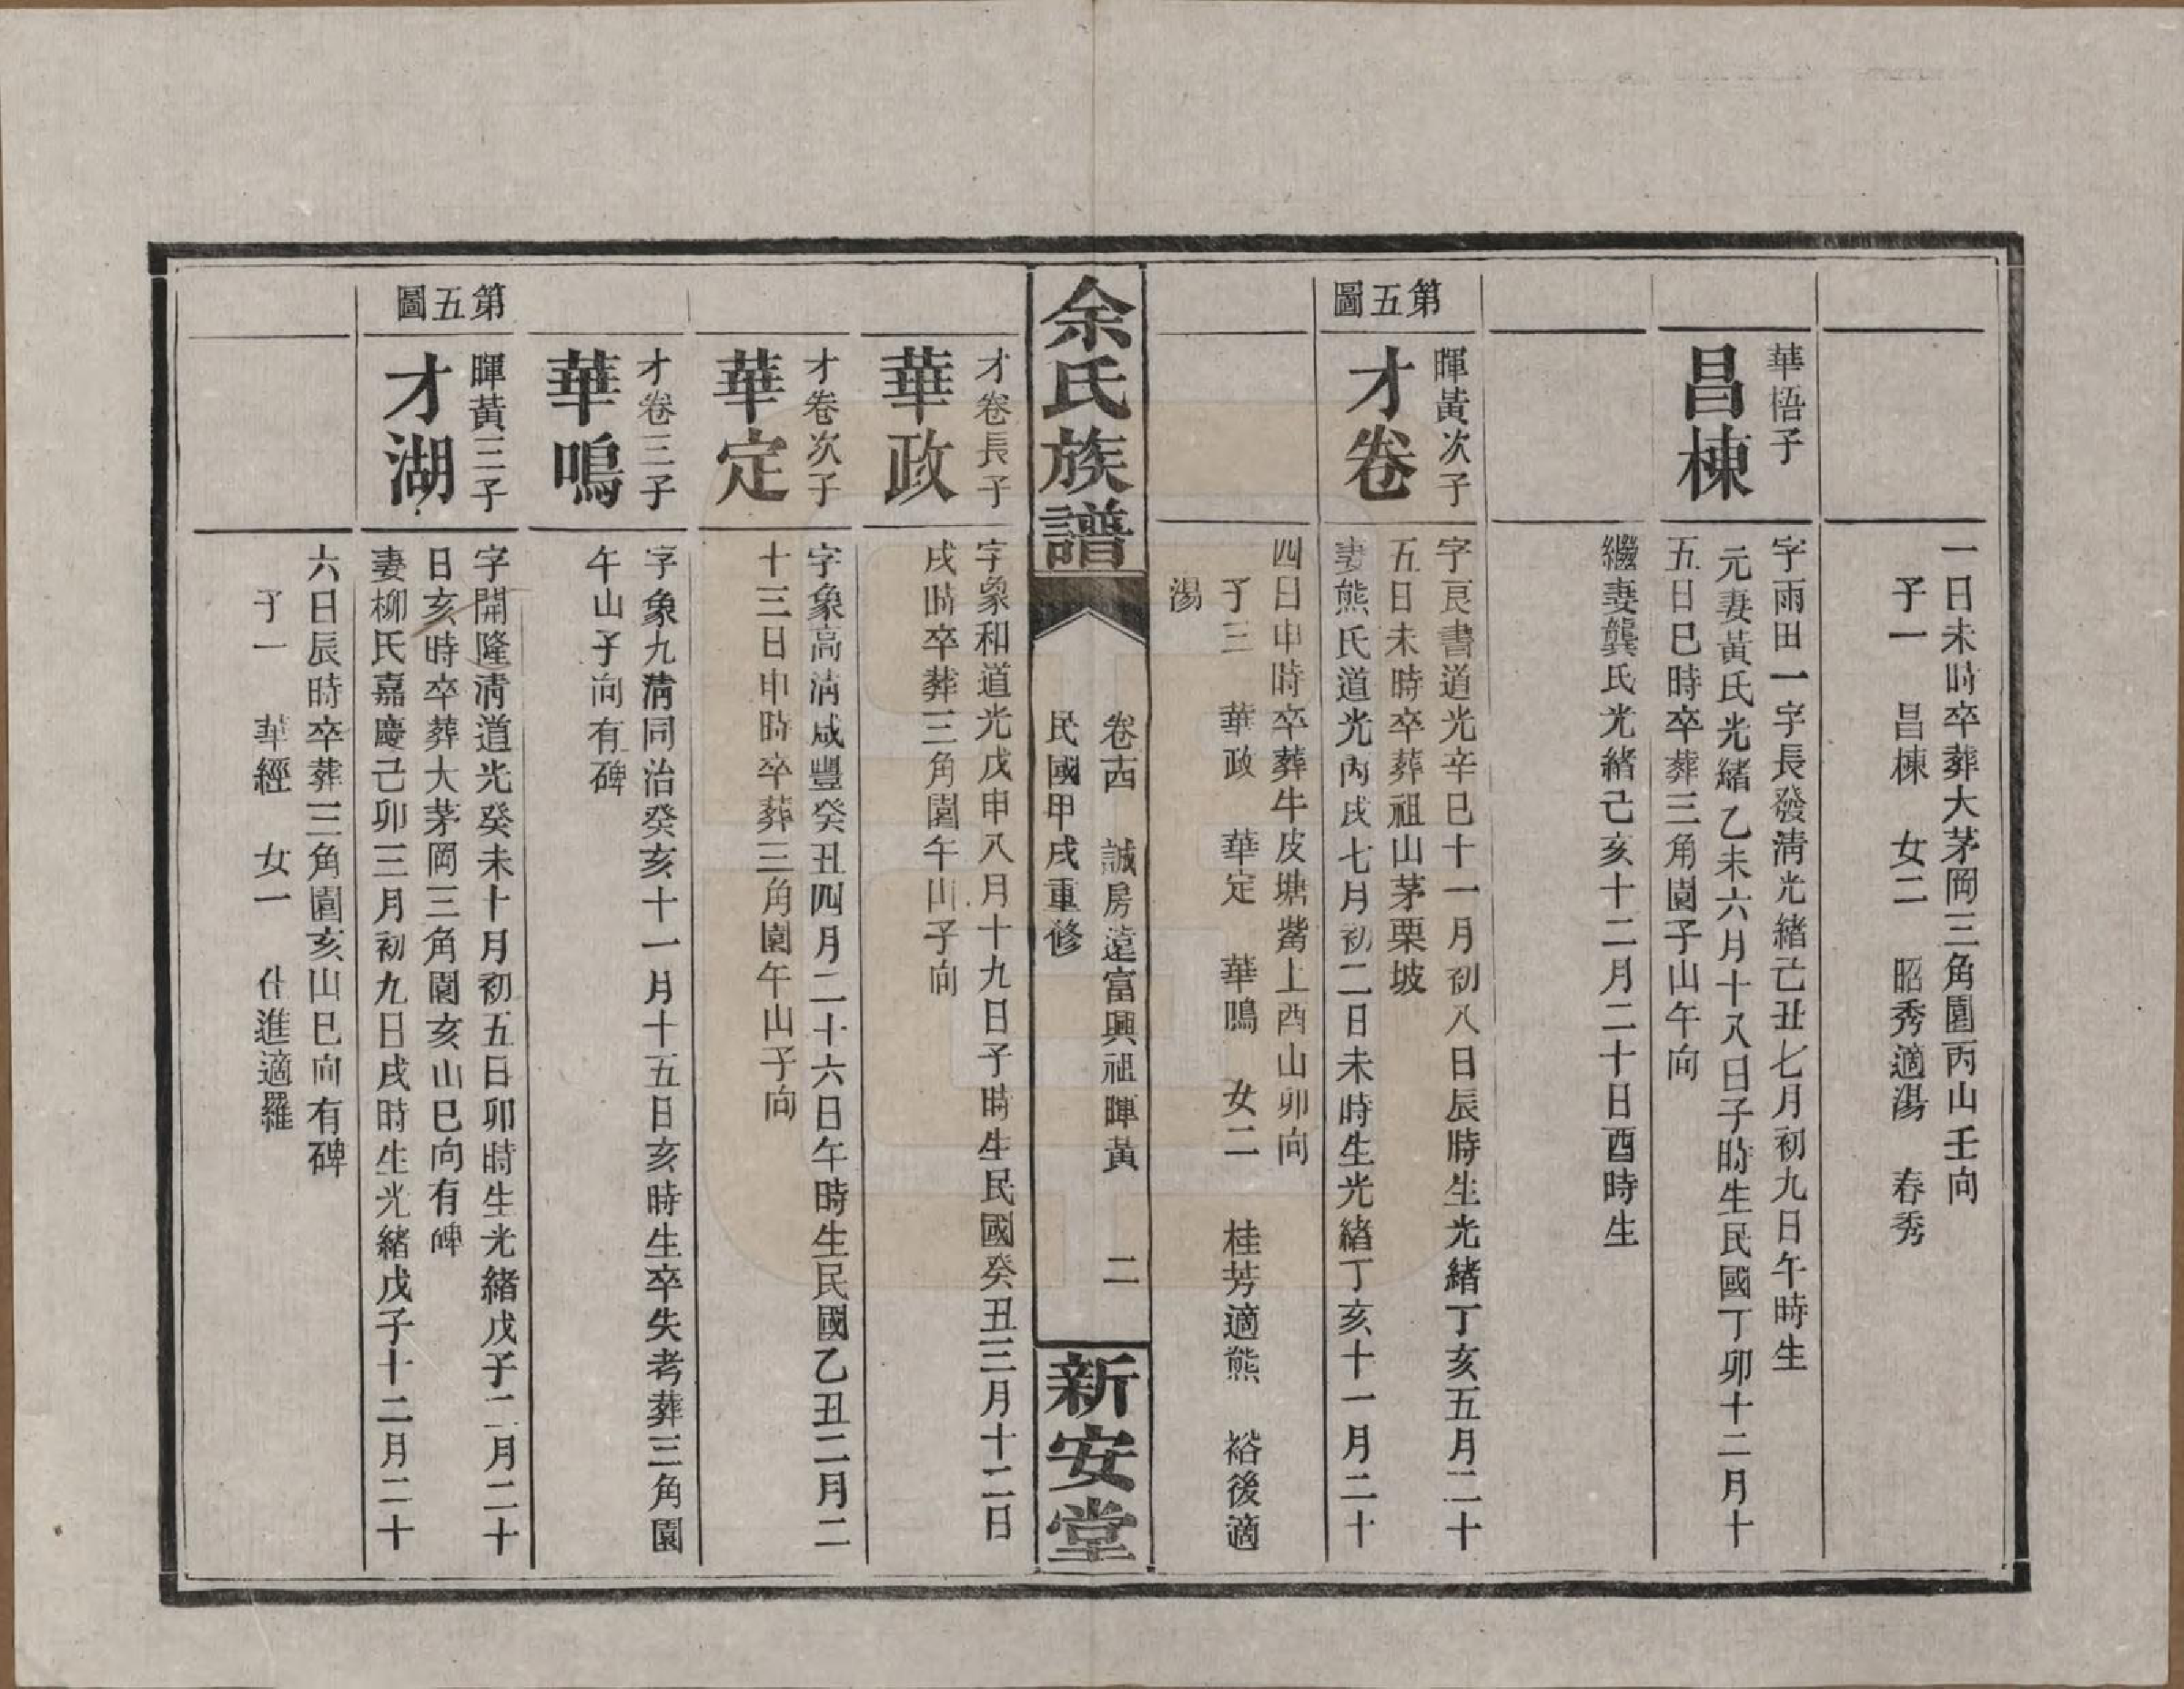 一日未時卒葬大茅岡三角園丙山壬向
子一　昌棟　女二　昭秀適湯　春秀
華悟子
昌棟
字雨田一字長發清光緒己丑七月初九日午時生
元妻黃氏光緒乙未六月十八日子時生民國丁卯十二月十
五日巳時卒葬三角園子山午向
繼妻龔氏光緒己亥十二月二十日酉時生
第五圖
暉黃次子
才卷
字良書道光辛巳十一月初八日辰時生光緒丁亥五月二十
五日未時卒葬祖山茅栗坡
妻熊氏道光丙戌七月初二日未時生光緒丁亥十一月二十
四日申時卒葬牛皮塘觜上酉山卯向
子三　華政　華定　華鳴　女二　桂芳適熊　裕後適
湯
余氏族譜
卷西　誠房遠富興祖暉黃　二
民國甲戌重修
新安堂
才卷長子
華政
字象和道光戊申八月十九日子時生民國癸丑三月十二日
戌時卒葬三角園午山子向
才卷次子
華定
字象高清咸豐癸丑四月二十六日午時生民國乙丑二月二
十三日申時卒葬三角園午山子向
才卷三子
華鳴
字象九清同治癸亥十一月十五日亥時生卒失考葬三角園
午山子向有碑
第五圖
暉黃三子
才湖
字開隆清道光癸未十月初五日卯時生光緒戊子二月二十
日亥時卒葬大茅岡三角園亥山巳向有碑
妻柳氏嘉慶己卯三月初九日戌時生光緒戊子十二月二十
六日辰時卒葬三角園亥山巳向有碑
子一　華經　女一　仕進適羅